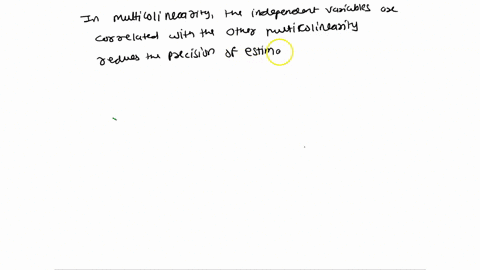 In multicolinearity, the independent variables are
correlated with the other multicolinearity
reduces the precision of estima